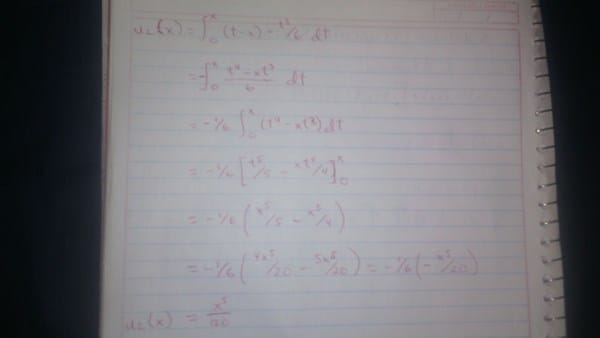 u₂(x) = ∫₀ˣ (t-x) - t³/6 dt
= -∫₀ˣ (t⁴ - xt³)/6 dt
= -1/6 ∫₀ˣ (t⁴ - xt³) dt
= -1/6 [t⁵/5 - xt⁴/4]₀ˣ
= -1/6 (x⁵/5 - x⁵/4)
= -1/6 (4x⁵/20 - 5x⁵/20) = -1/6 (-x⁵/20)
u₂(x) = x⁵/120